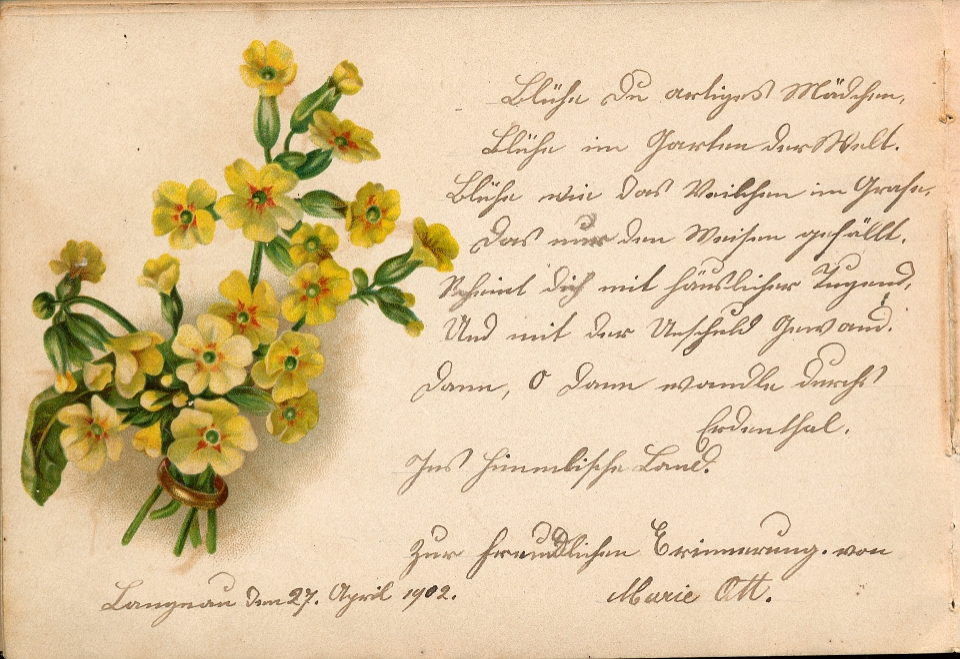 Blühe Du artiges Mädchen,
Blühe im Garten der Welt.
Blühe wie das Veilchen im Grase,
Das nur den Weisen gefällt.
Scheint dich mit häuslicher Tugend,
Und mit der Unschuld Gewand.
Dann, O dann wandle durchs
Erdenthal.
Ins himmlische Land.
Zur freundlichen Erinnerung. von
Langnau den 27. April 1902.
Marie Ott.